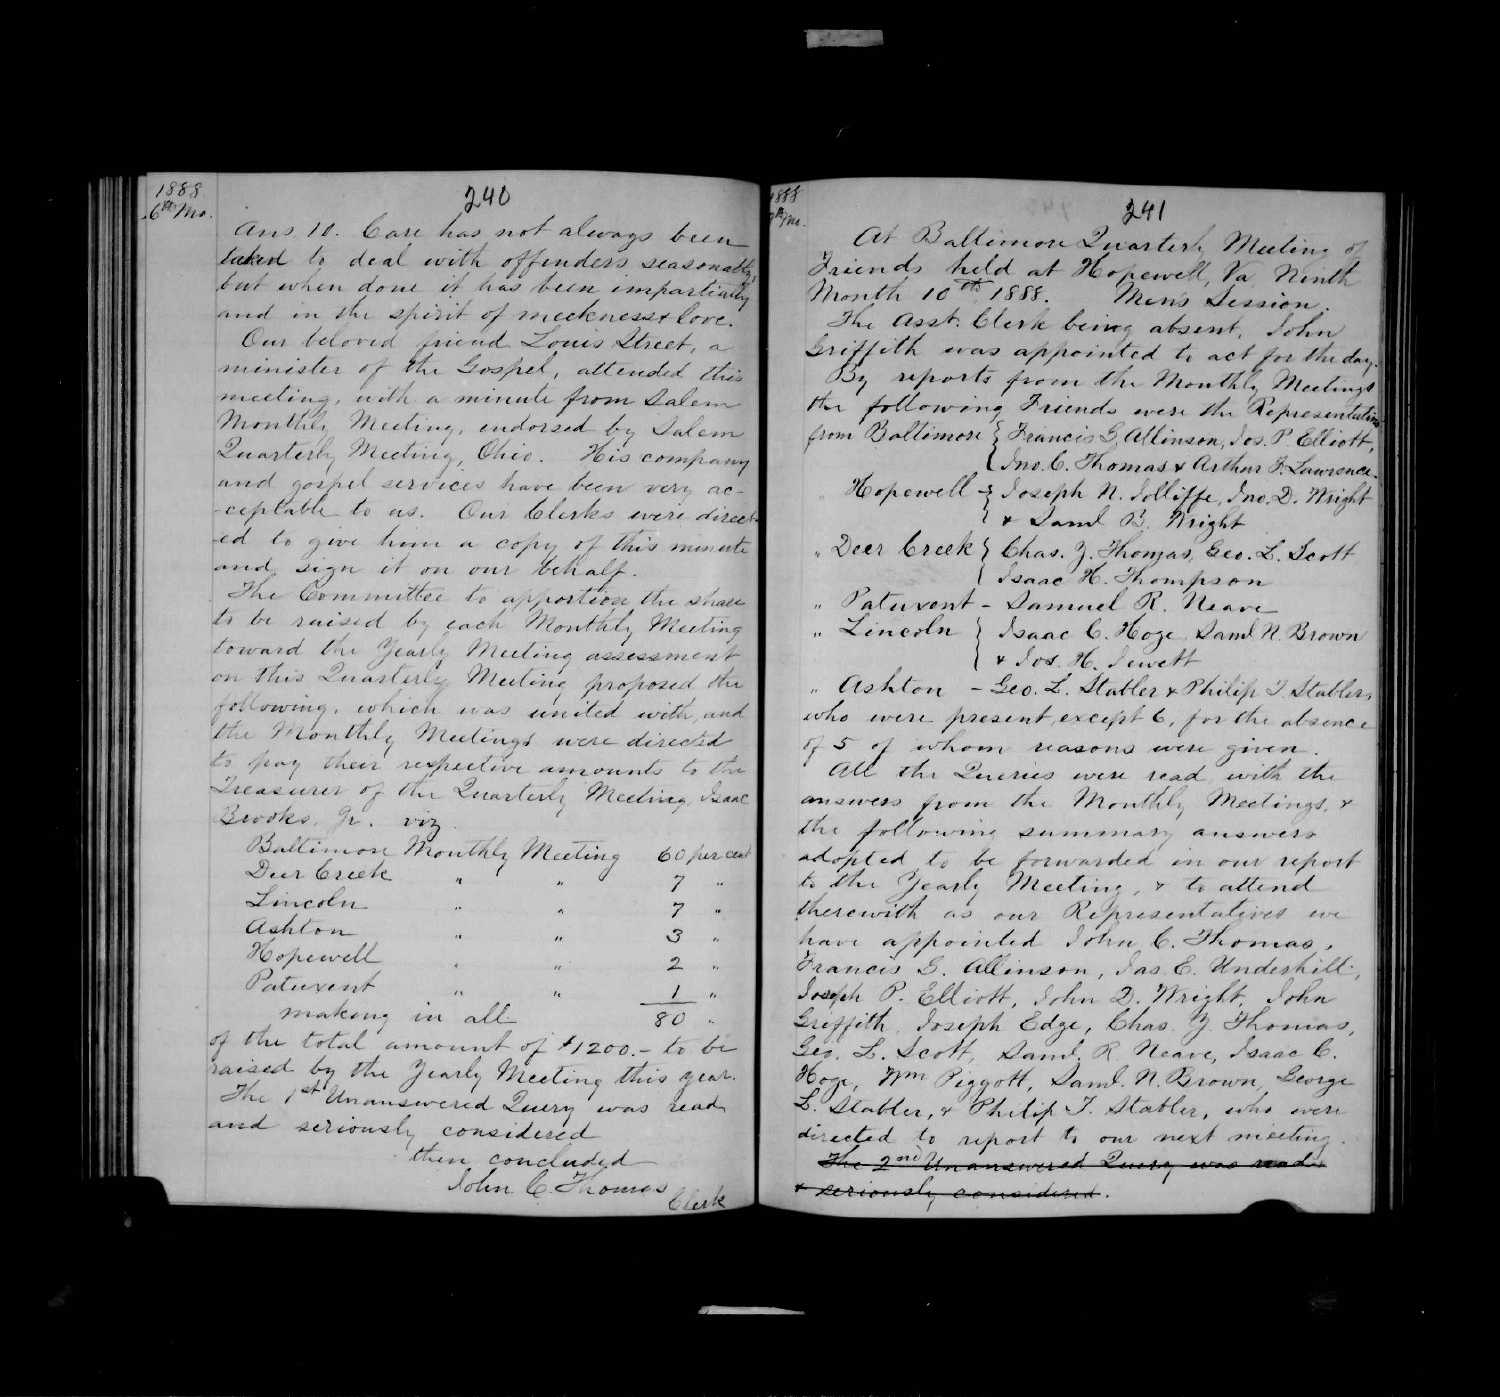 1888.
6th Mo.
240
Ans 10. Care has not always been
taken to deal with offenders seasonably,
but when done it has been impartially
and in the spirit of meekness & love.
Our beloved friend Louis Street, a
minister of the Gospel, attended this
meeting, with a minute from Salem
Monthly Meeting, endorsed by Salem
Quarterly Meeting, Ohio. His company
and gospel services have been very ac-
-ceptable to us. Our Clerks were direct-
-ed to give him a copy of this minute
and sign it on our behalf.
The Committee to apportion the share
to be raised by each Monthly Meeting
toward the Yearly Meeting assessment
on this Quarterly Meeting proposed the
following, which was united with, and
the Monthly Meetings were directed
to pay their respective amounts to the
Treasurer of the Quarterly Meeting, Isaac
Brooks, Jr. viz
Baltimore Monthly Meeting 60 per cent
Deer Creek " " 7 "
Lincoln " " 7 "
Ashton " " 3 "
Hopewell " " 2 "
Patuxent " " 1 "
making in all 80 "
of the total amount of $1200.- to be
raised by the Yearly Meeting this year.
The 1st Unanswered Query was read
and seriously considered
then concluded
John C. Thomas
Clerk
1888
Mo.
241
At Baltimore Quarterly Meeting of
Friends held at Hopewell, Va, Ninth
Month 10th 1888. Men's Session.
The Asst. Clerk being absent, John
Griffith was appointed to act for the day.
By reports from the Monthly Meetings
the following Friends were the Representatives
from Baltimore { Francis G. Allinson, Jos. P. Elliott,
Jno. C. Thomas & Arthur F. Lawrence.
" Hopewell - { Joseph N. Jolliffe, Jno. D. Wright
& Saml B. Wright
" Deer Creek { Chas. Y. Thomas, Geo. L. Scott
Isaac H. Thompson
" Patuxent - Samuel R. Neave
" Lincoln { Isaac C. Hoge, Saml N. Brown
& Jos. H. Jewett
" Ashton - Geo. L. Stabler & Philip T. Stabler,
who were present, except 6, for the absence
of 5 of whom reasons were given.
All the Queries were read with the
answers from the Monthly Meetings, &
the following summary answers
adopted to be forwarded in our report
to the Yearly Meeting, & to attend
therewith as our Representatives we
have appointed John C. Thomas,
Francis G. Allinson, Jas. E. Underhill,
Joseph P. Elliott, John D. Wright, John
Griffith, Joseph Edge, Chas. Y. Thomas,
Geo. L. Scott, Saml. R. Neave, Isaac C.
Hoge, Wm Piggott, Saml. N. Brown, George
L. Stabler, & Philip T. Stabler, who were
directed to report to our next meeting.
The 2nd Unanswered Query was read
& seriously considered.